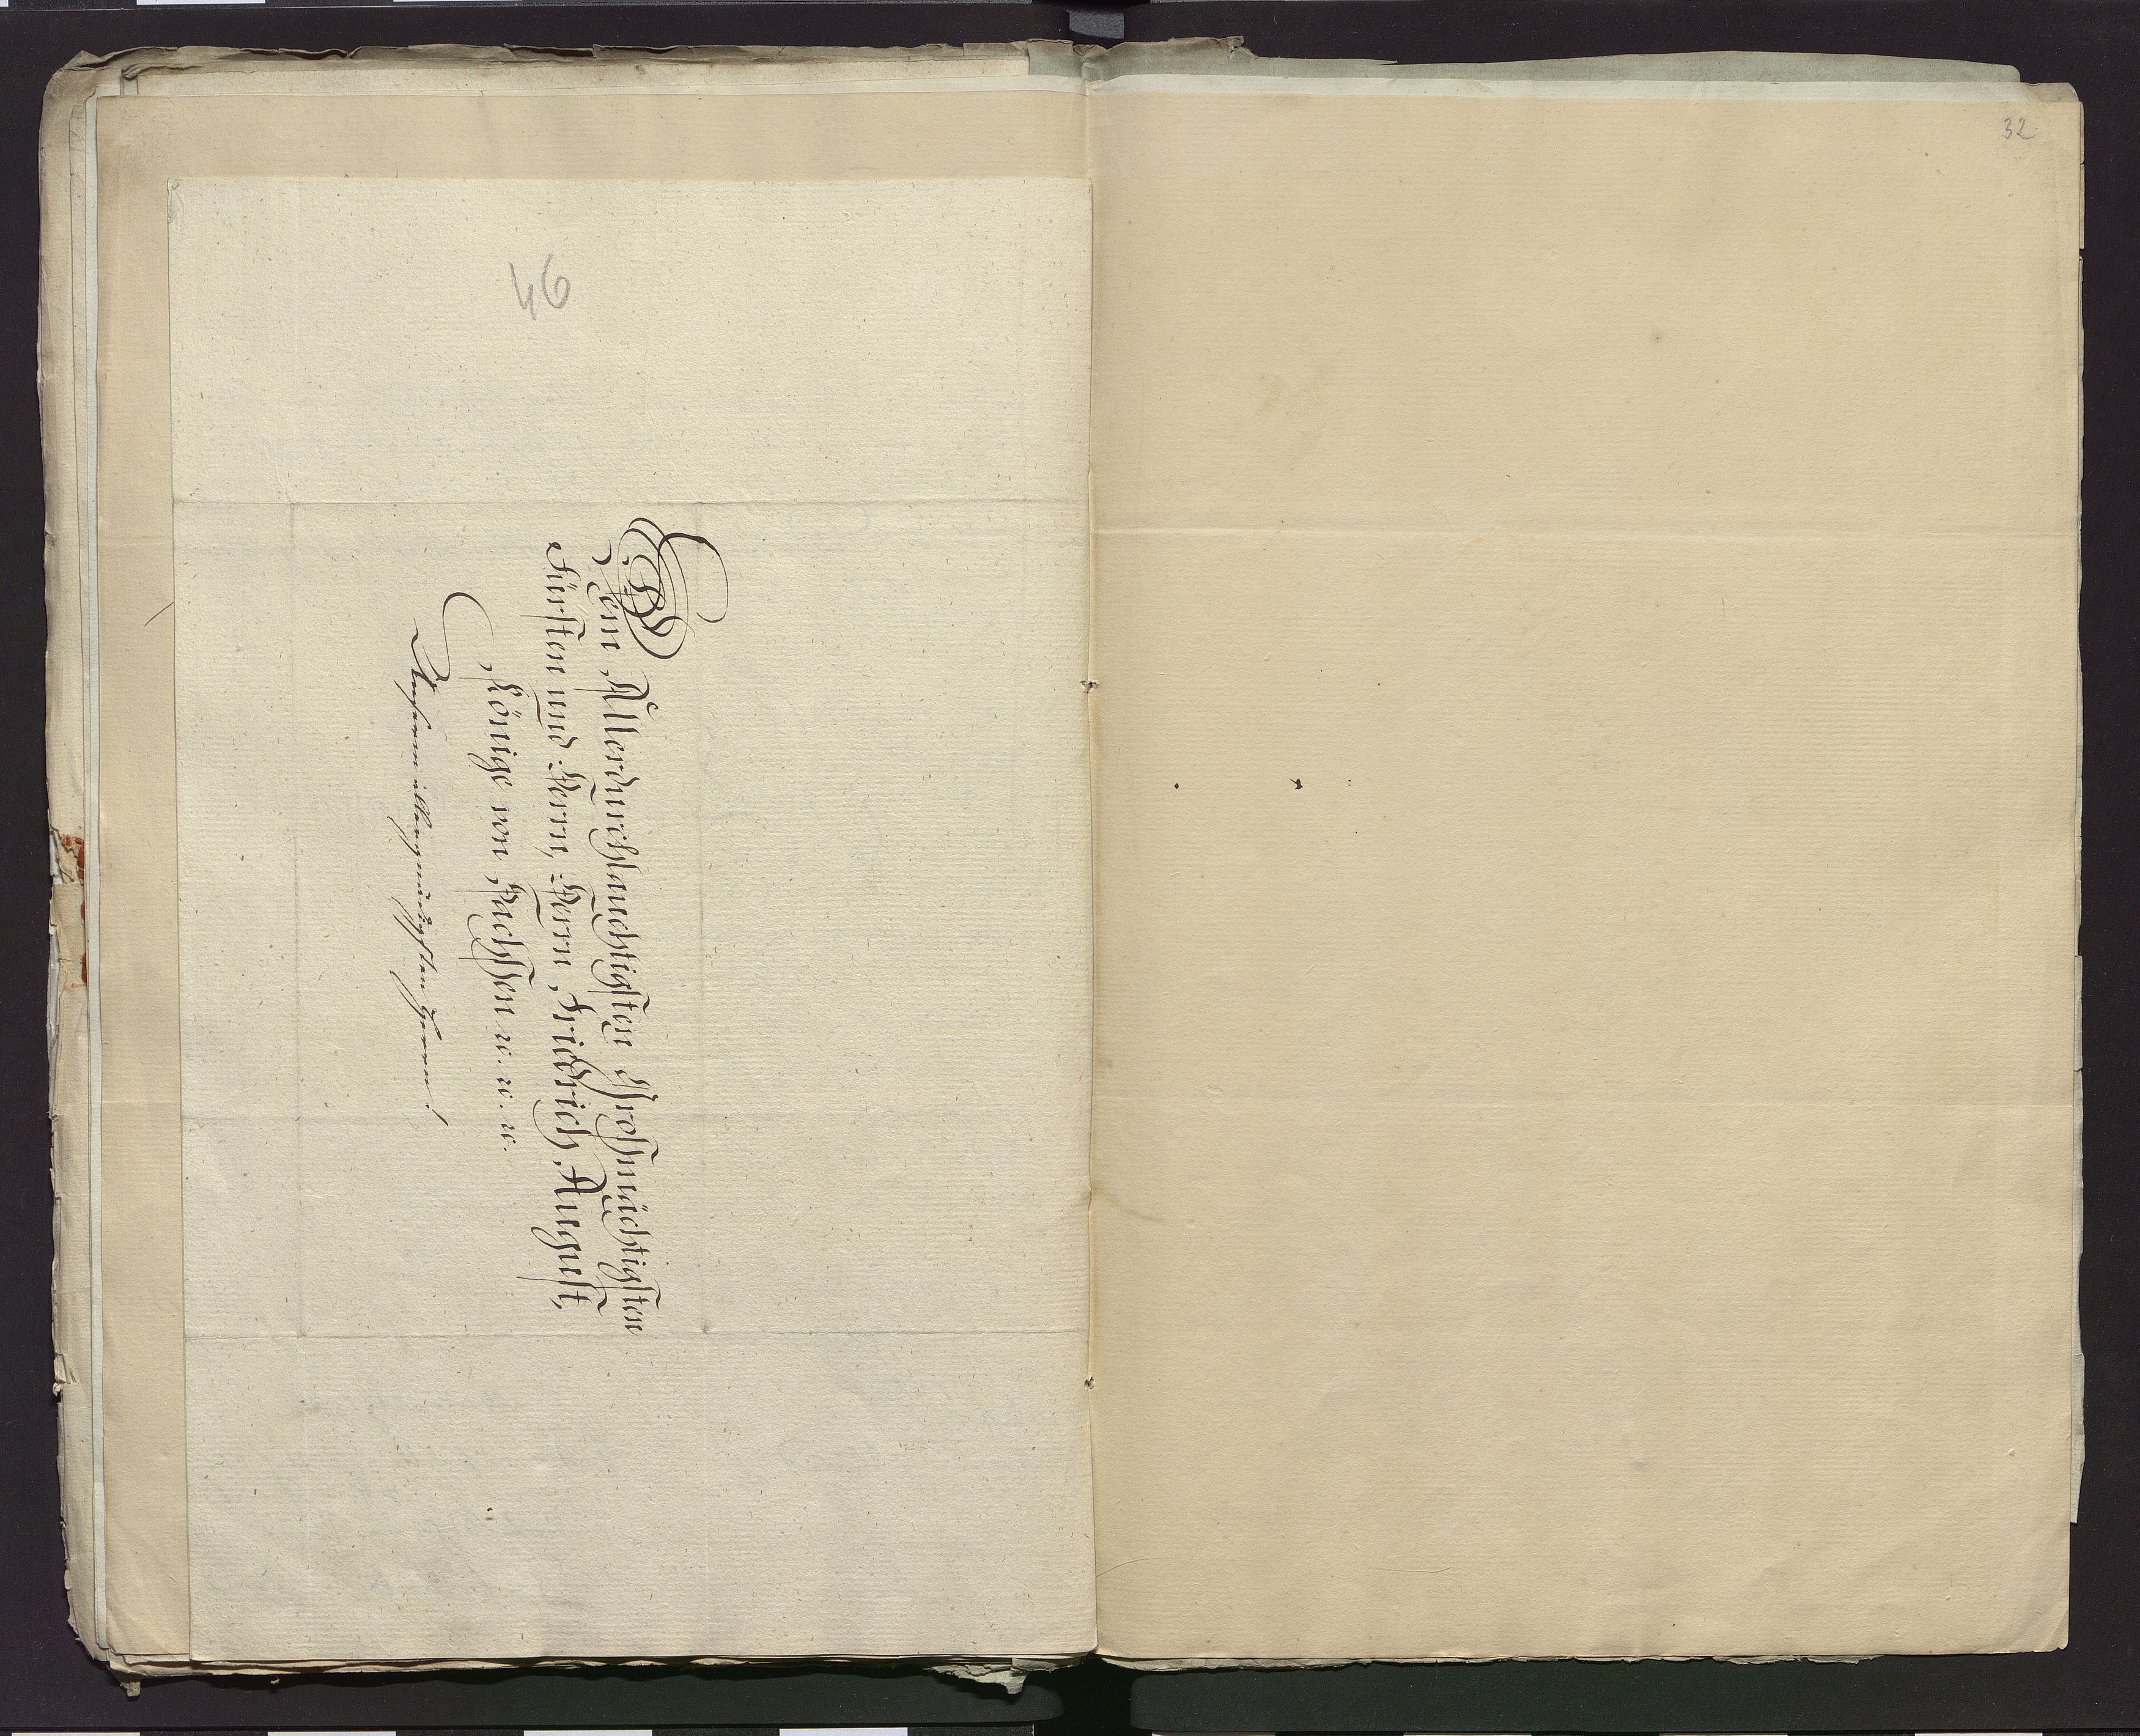 46
Dem Allerdurchlauchtigsten Grosmächtigsten
Fürsten und Herrn, Herrn, Fridrich August,
Könige von Sachssen ꝛc. ꝛc. ꝛc.
Unserm allergnädigsten Herrn!
32